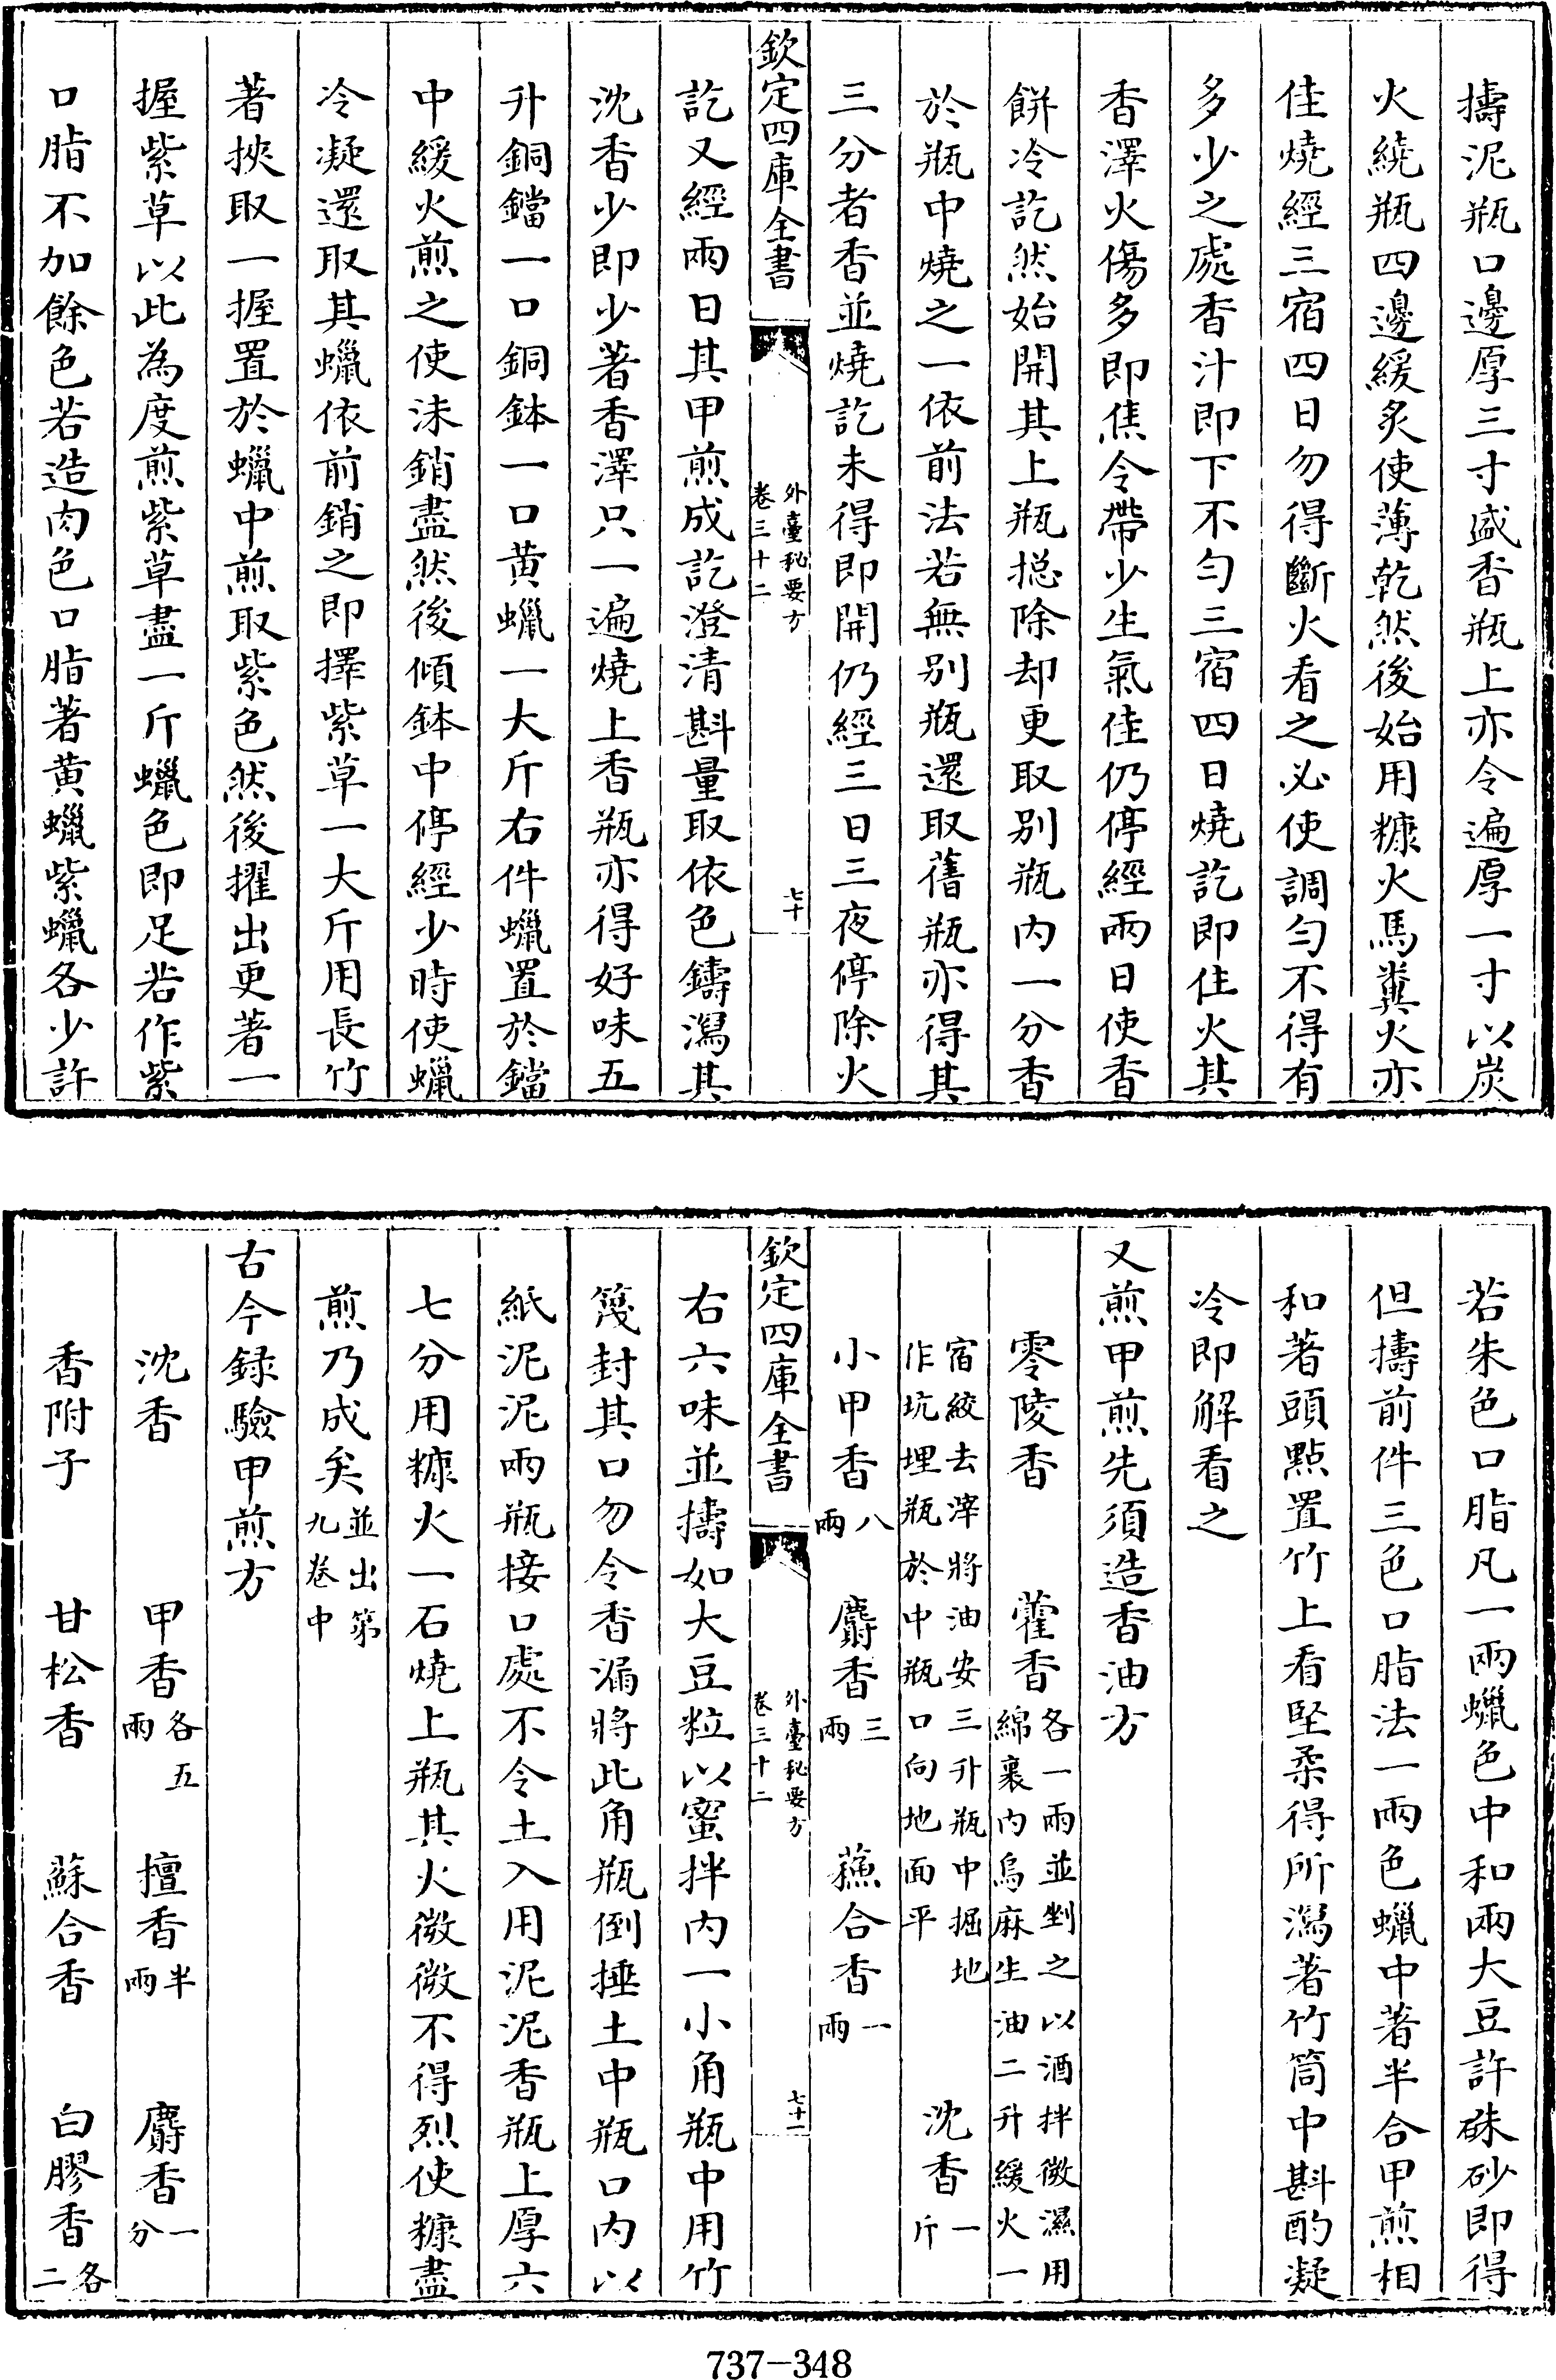 擣泥瓶口邊厚三寸盛香瓶上亦令遍厚一寸以炭
火繞瓶四邊緩炙使薄乾然後始用糠火馬糞火亦
佳燒經三宿四日勿得斷火看之必使調勻不得有
多少之處香汁即下不勻三宿四日燒訖即住火其
香澤火傷多即焦令帶少生氣佳仍停經兩日使香
餅冷訖然始開其上瓶摠除却更取别瓶内一分香
於瓶中燒之一依前法若無别瓶還取舊瓶亦得其
三分者香並燒訖未得即開仍經三日三夜停除火
欽定四庫全書
外臺秘要方
卷三十二
七十
訖又經兩日其甲煎成訖澄清斟量取依色鑄瀉其
沈香少即少著香澤只一遍燒上香瓶亦得好味五
升銅鐺一口銅鉢一口黄蠟一大斤右件蠟置於鐺
中緩火煎之使沫銷盡然後傾鉢中停經少時使蠟
冷凝還取其蠟依前銷之即擇紫草一大斤用長竹
著挾取一握置於蠟中煎取紫色然後擢出更著一
握紫草以此為度煎紫草盡一斤蠟色即足若作紫
口脂不加餘色若造肉色口脂著黄蠟紫蠟各少許
若朱色口脂凡一兩蠟色中和兩大豆許硃砂即得
但擣前件三色口脂法一兩色蠟中著半合甲煎相
和著頭點置竹上看堅柔得所瀉著竹筒中斟酌凝
冷即解看之
又煎甲煎先須造香油方
零陵香 藿香各一兩並剉之以酒拌微濕用綿裹内烏麻生油二升緩火一
宿絞去滓將油安三升瓶中掘地作坑埋瓶於中瓶口向地面平 沈香一斤
小甲香八兩 麝香三兩 蘓合香一兩
欽定四庫全書
外臺秘要方
卷三十二
七十一
右六味並擣如大豆粒以蜜拌内一小角瓶中用竹
篾封其口勿令香漏將此角瓶倒捶土中瓶口内以
紙泥泥兩瓶接口處不令土入用泥泥香瓶上厚六
七分用糠火一石燒上瓶其火微微不得烈使糠盡
煎乃成矣並出第九卷中
古今録驗甲煎方
沈香 甲香各五兩 檀香半兩 麝香一分
香附子 甘松香 蘇合香 白膠香各二
737-348